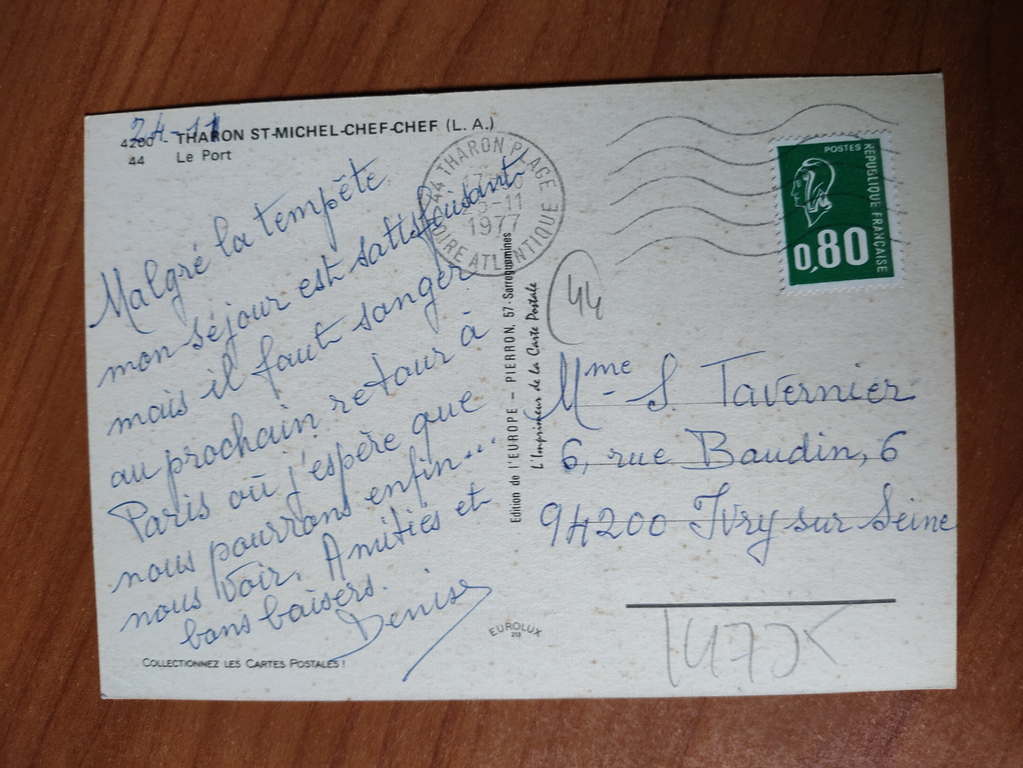 24-11
4200 - THARON ST-MICHEL-CHEF-CHEF (L. A.)
44 Le Port
Malgré la tempête
mon séjour est satisfaisant
mais il faut songer
au prochain retour à
Paris où j'espère que
nous pourrons enfin...
nous voir. Amitiés et
bons baisers.
Denise
COLLECTIONNEZ LES CARTES POSTALES !
44 THARON PLAGE
25-11
1977
LOIRE ATLANTIQUE
Edition de l'EUROPE - PIERRON, 57 - Sarreguemines
L'Imprimeur de la Carte Postale
EUROLUX
POSTES
REPUBLIQUE FRANÇAISE
0,80
44
Mme S. Tavernier
6, rue Baudin, 6
94200 Ivry sur Seine